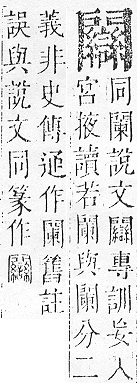 𨷻
同闌說文𨷻專訓妄入
宮掖讀若闌與闌分二
義非史傳通作闌舊註
誤與說文同篆作𨷻